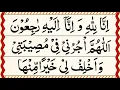 اِنَّا لِلّٰهِ وَ اِنَّاۤ اِلَيْهِ رٰجِعُوْنَ
اَللّٰهُمَّ اْجُرْنِيْ فِيْ مُصِيْبَتِيْ
وَاَخْلِفْ لِيْ خَيْرًا مِّنْهَا